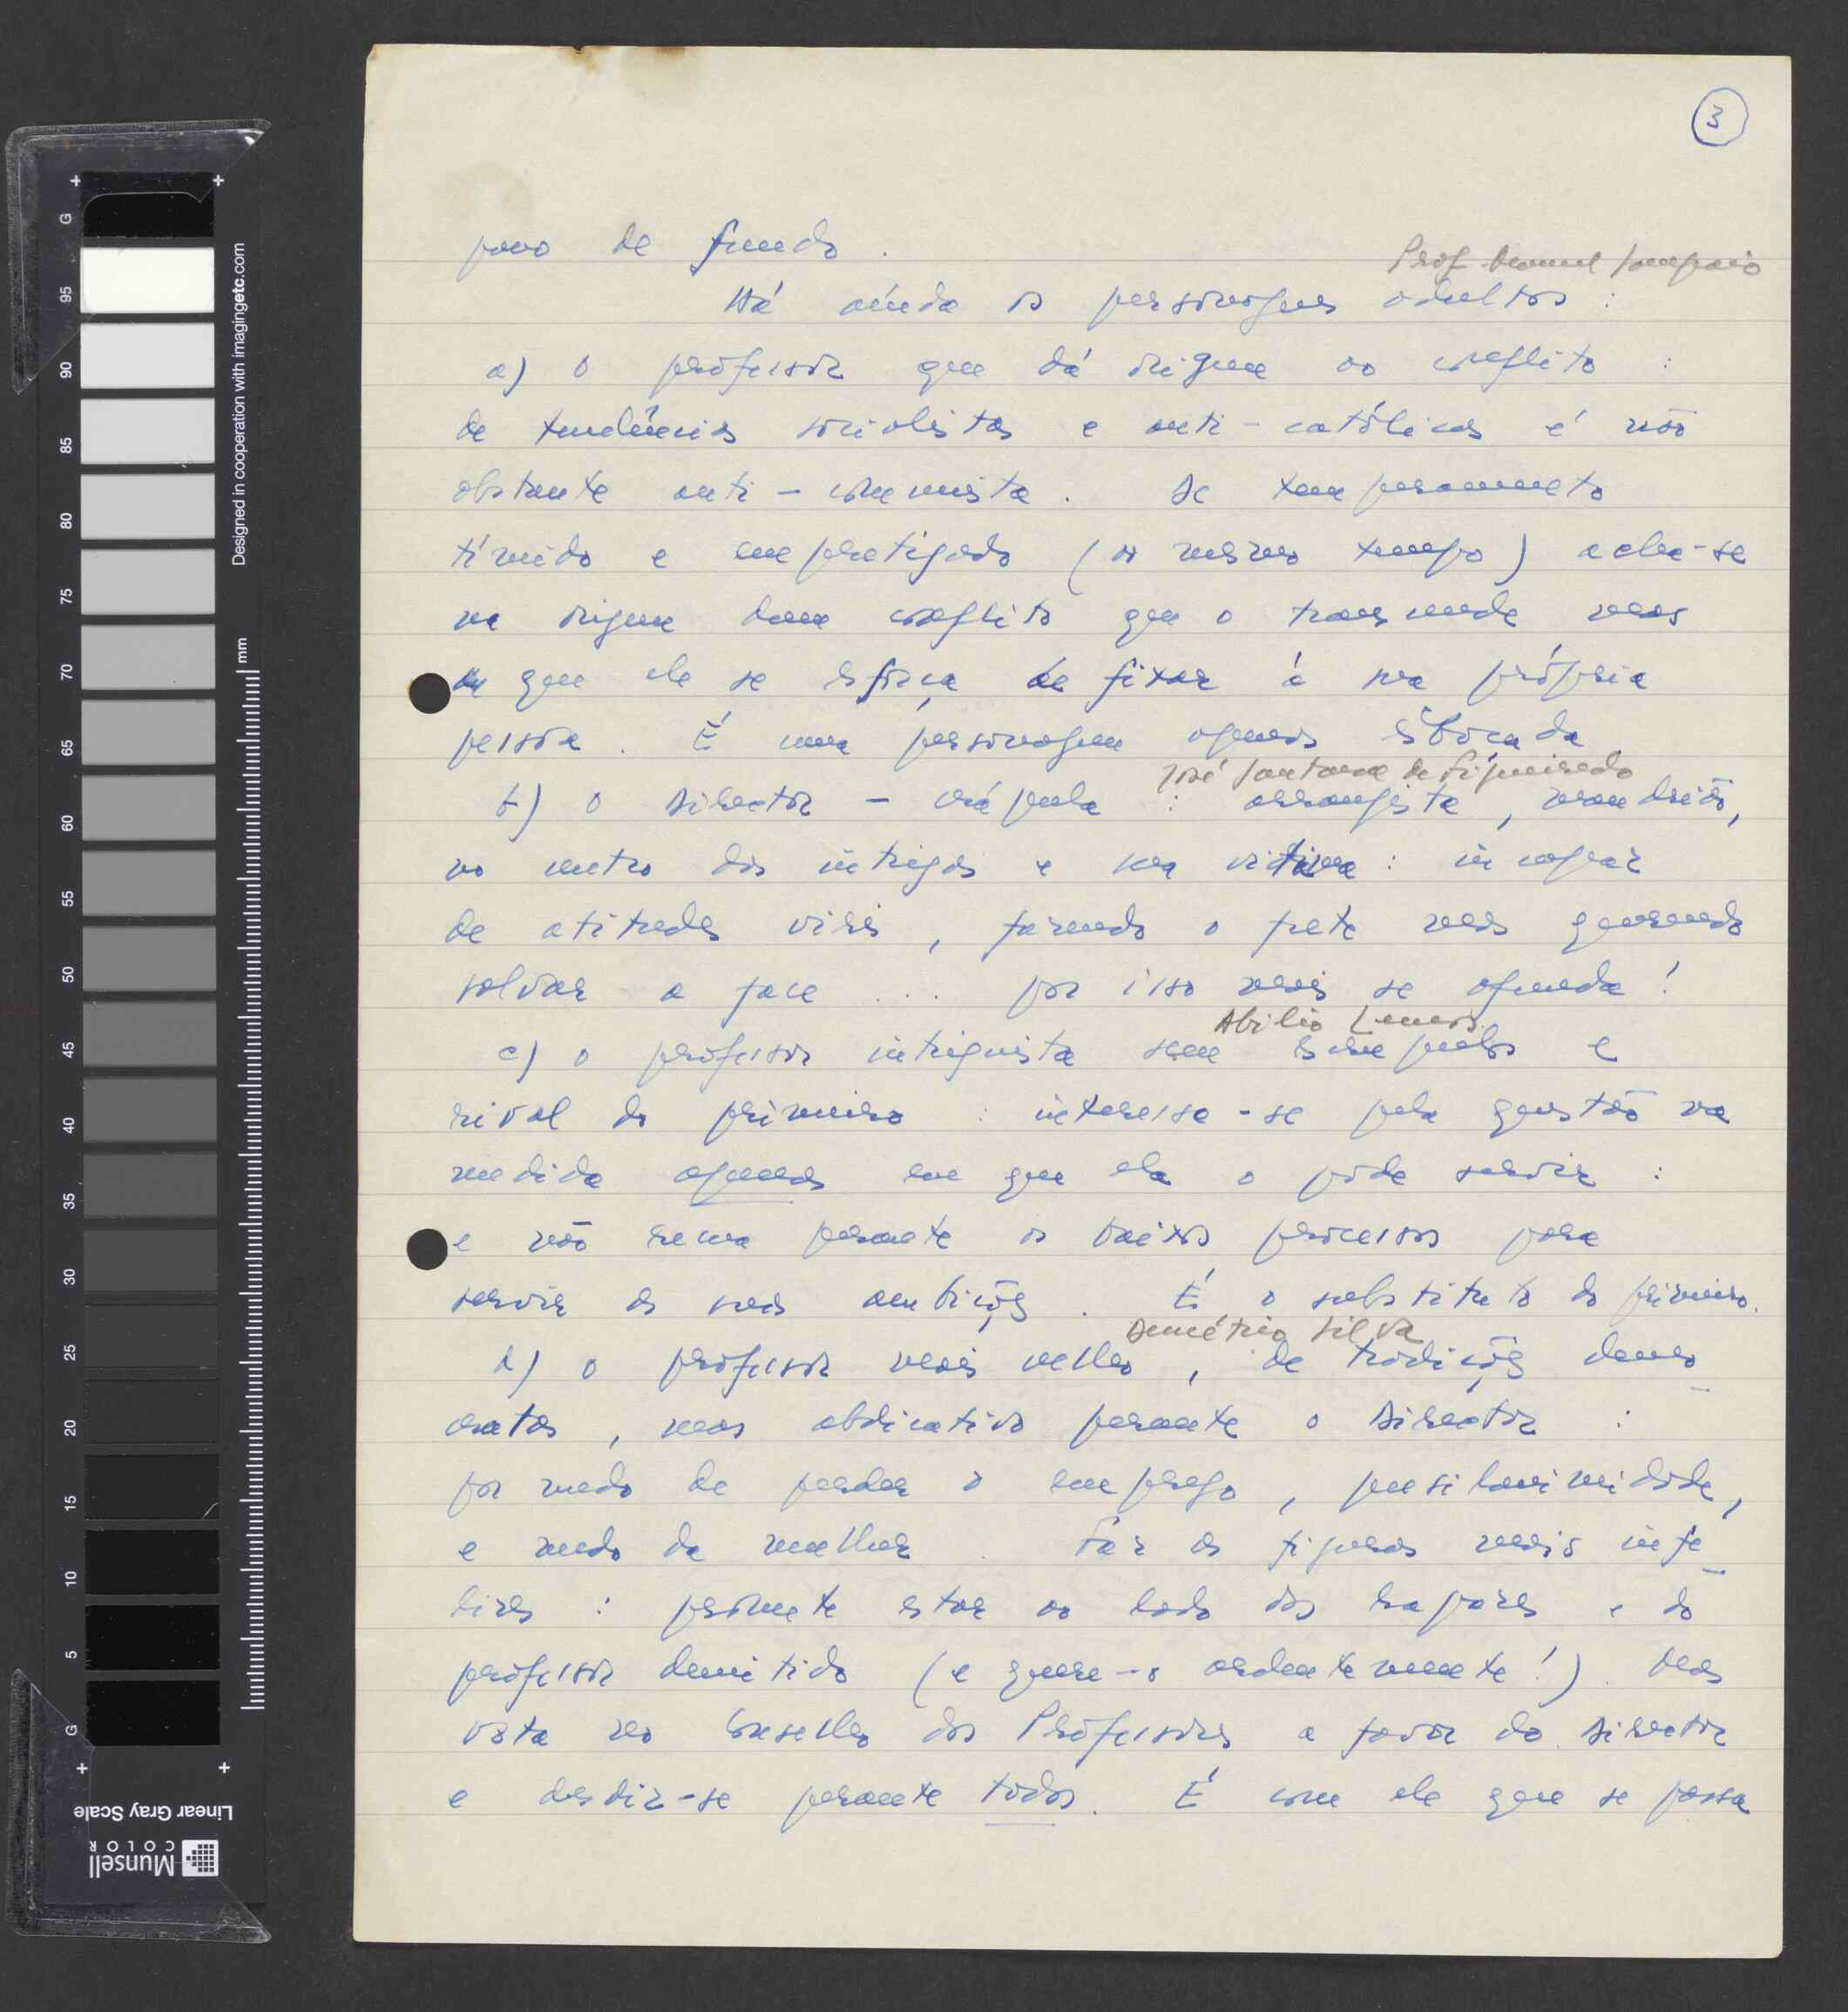 3
pano de fundo.
Prof. Manuel Sampaio
Há ainda os personagens adultos :
a) o professor que dá origem ao conflito :
de tendências socialistas e anti-católicas é não
obstante anti-comunista. De temperamento
tímido e empertigado (ao mesmo tempo) acha-se
na origem dum conflito que o transcende mas
em que ele se esforça de fixar à sua própria
pessoa. É uma personagem apenas esboçada
José Santana de Figueiredo
b) o Director - crápula : arranjista, mandrião,
no centro das intrigas e sua vítima : incapaz
de atitudes viris, fazendo o frete mas querendo
salvar a face ... por isso mais se afunda!
Abílio Lemos.
c) o professor intriguista sem escrupulos e
rival do primeiro : interessa-se pela questão na
medida apenas em que ela o pode servir :
e não recua perante os baixos processos para
servir as suas ambições. É o substituto do primeiro.
Demétrio Silva
d) o professor mais velho, de tradições demo_
cratas, mas abdicativo perante o Director :
por medo de perder o emprego, pusilanimidade,
e medo da mulher. Faz as figuras mais infe_
lizes : promete estar ao lado dos rapazes e do
professor demitido (e quere-o ardentemente!). Mas
vota no Conselho dos Professores a favor do Director
e desdiz-se perante todos. É com ele que se passa
Designed in cooperation with imagingetc.com
mm
G
95
90
85
80
75
70
65
60
55
50
45
40
35
30
25
20
15
10
5
G
Linear Gray Scale
Munsell
COLOR